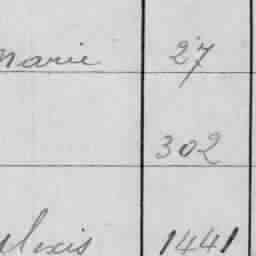 Marie 27
302
Alexis 1441